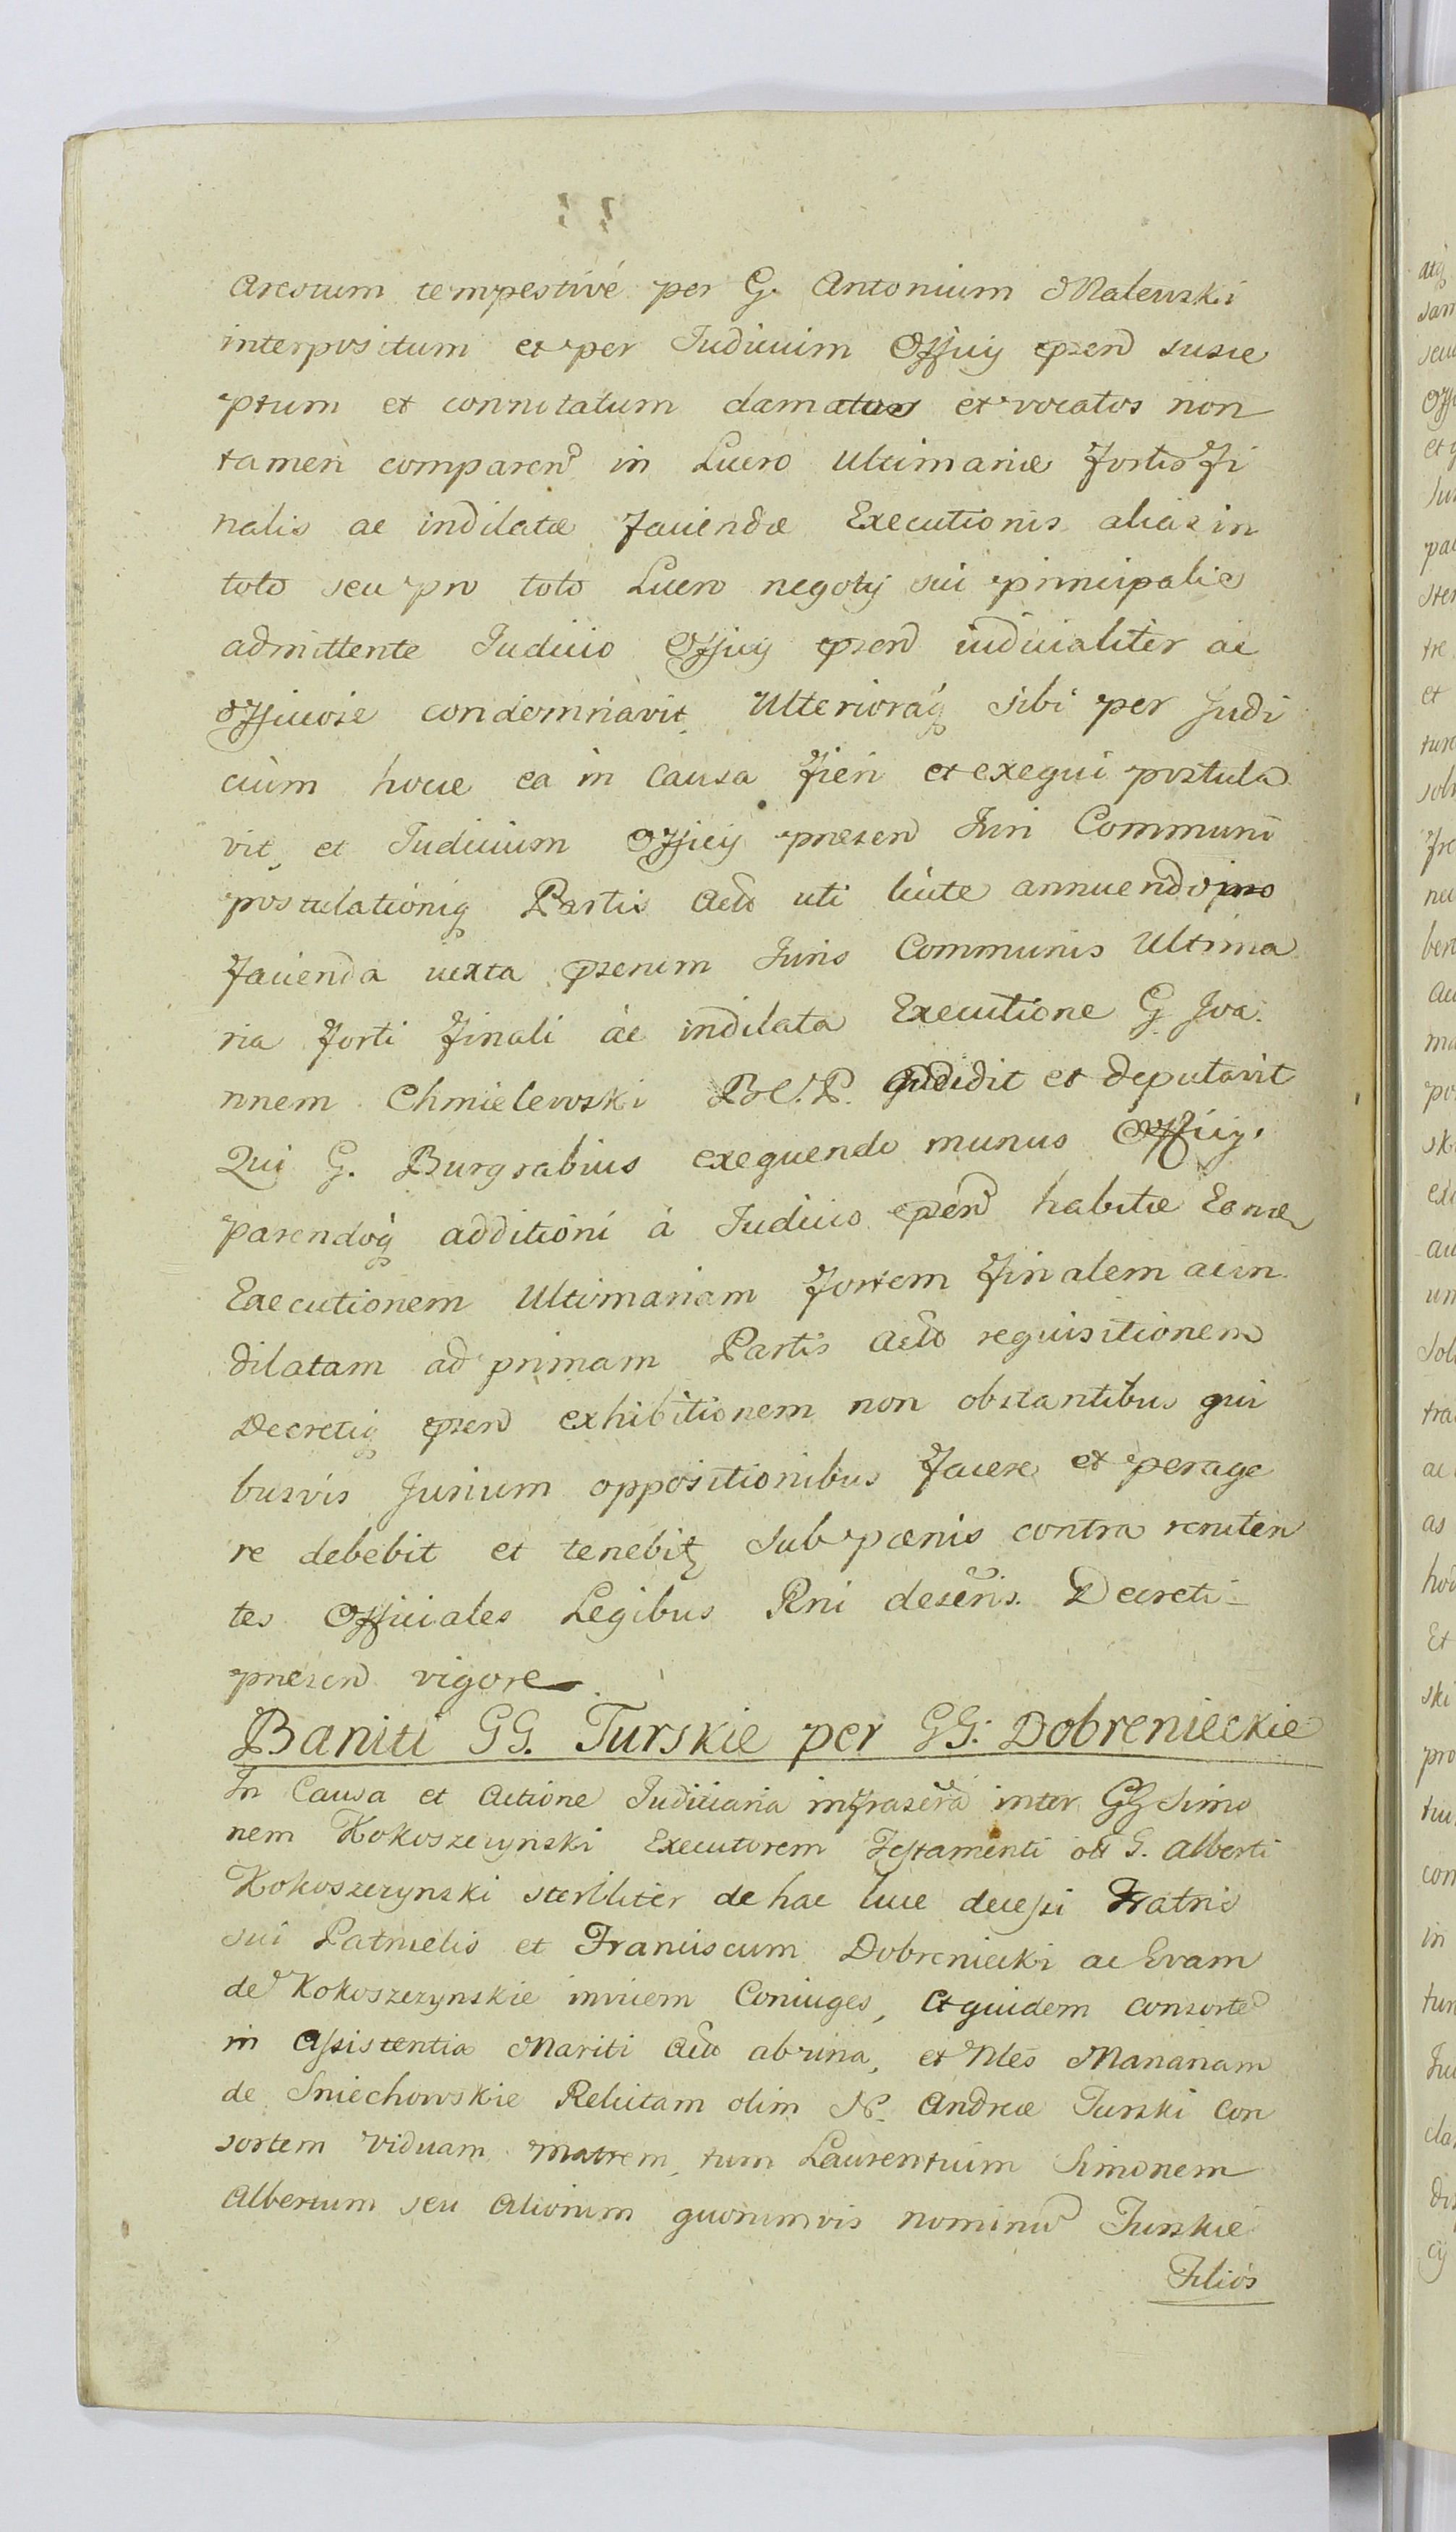 Arestum tempestivé per G. Antonium Malewski
interpositum et per Judicium Officij præsen susce
ptum et connotatum clamatos et vocatos non
tamen comparen in Lucro Ultimariæ fortis fi
nalis ac indilatæ faciendæ Executionis alias in
toto seu pro toto Lucro negotij sui principalis
admittente Judicio Officij præsen iudicialiter ac
officiose condemnavit Ulterioraq sibi per Judi
cium hocce ea in Causa fieri et exequi postula
vit, et Judicium Officij præsen Juri Communi
postulationiq Partis Acto uti licite annuendo pro
facienda iuxta præsem Juris Communis Ultima
ria forti finali ac indilata Executione G. Joa
nnem Chmielewski B.C.P. addidit et deputavit
Qui G. Burgrabius exequendo munus Officij
parendoq additioni à Judicio præsen habitæ Eandem
Executionem Ultimariam fortem finalem ac in
dilatam ad primam Partis Acto requisitionem
Decretiq præsen exhibitionem non obstantibus qui
busvis Jurium oppositionibus facere et perage
re debebit et tenebit sub pœnis contra reniten
tes Officiales Legibus Rni descris. Decreti
præsen vigore
Baniti GG. Turskie per GG. Dobrenieckie
In Causa et Actione Judiciaria infrascra inter GG Simo
nem Kokoszczynski Executorem Testamenti olim G. Alberti
Kokoszczynski steriliter de hac luce decessi Fratris
sui Patruelis et Franciscum Dobreniecki ac Evam
de Kokoszczynskie invicem Coniuges, Et quidem consorte
in Assistentia Mariti Acto abrina, et Nles Mariannam
de Sniechowskie Relictam olim N. Andreæ Turski con
sortem viduam matrem, tum Laurentium Simonem
Albertum seu Aliorum quorumvis nominu Turskie
Filios